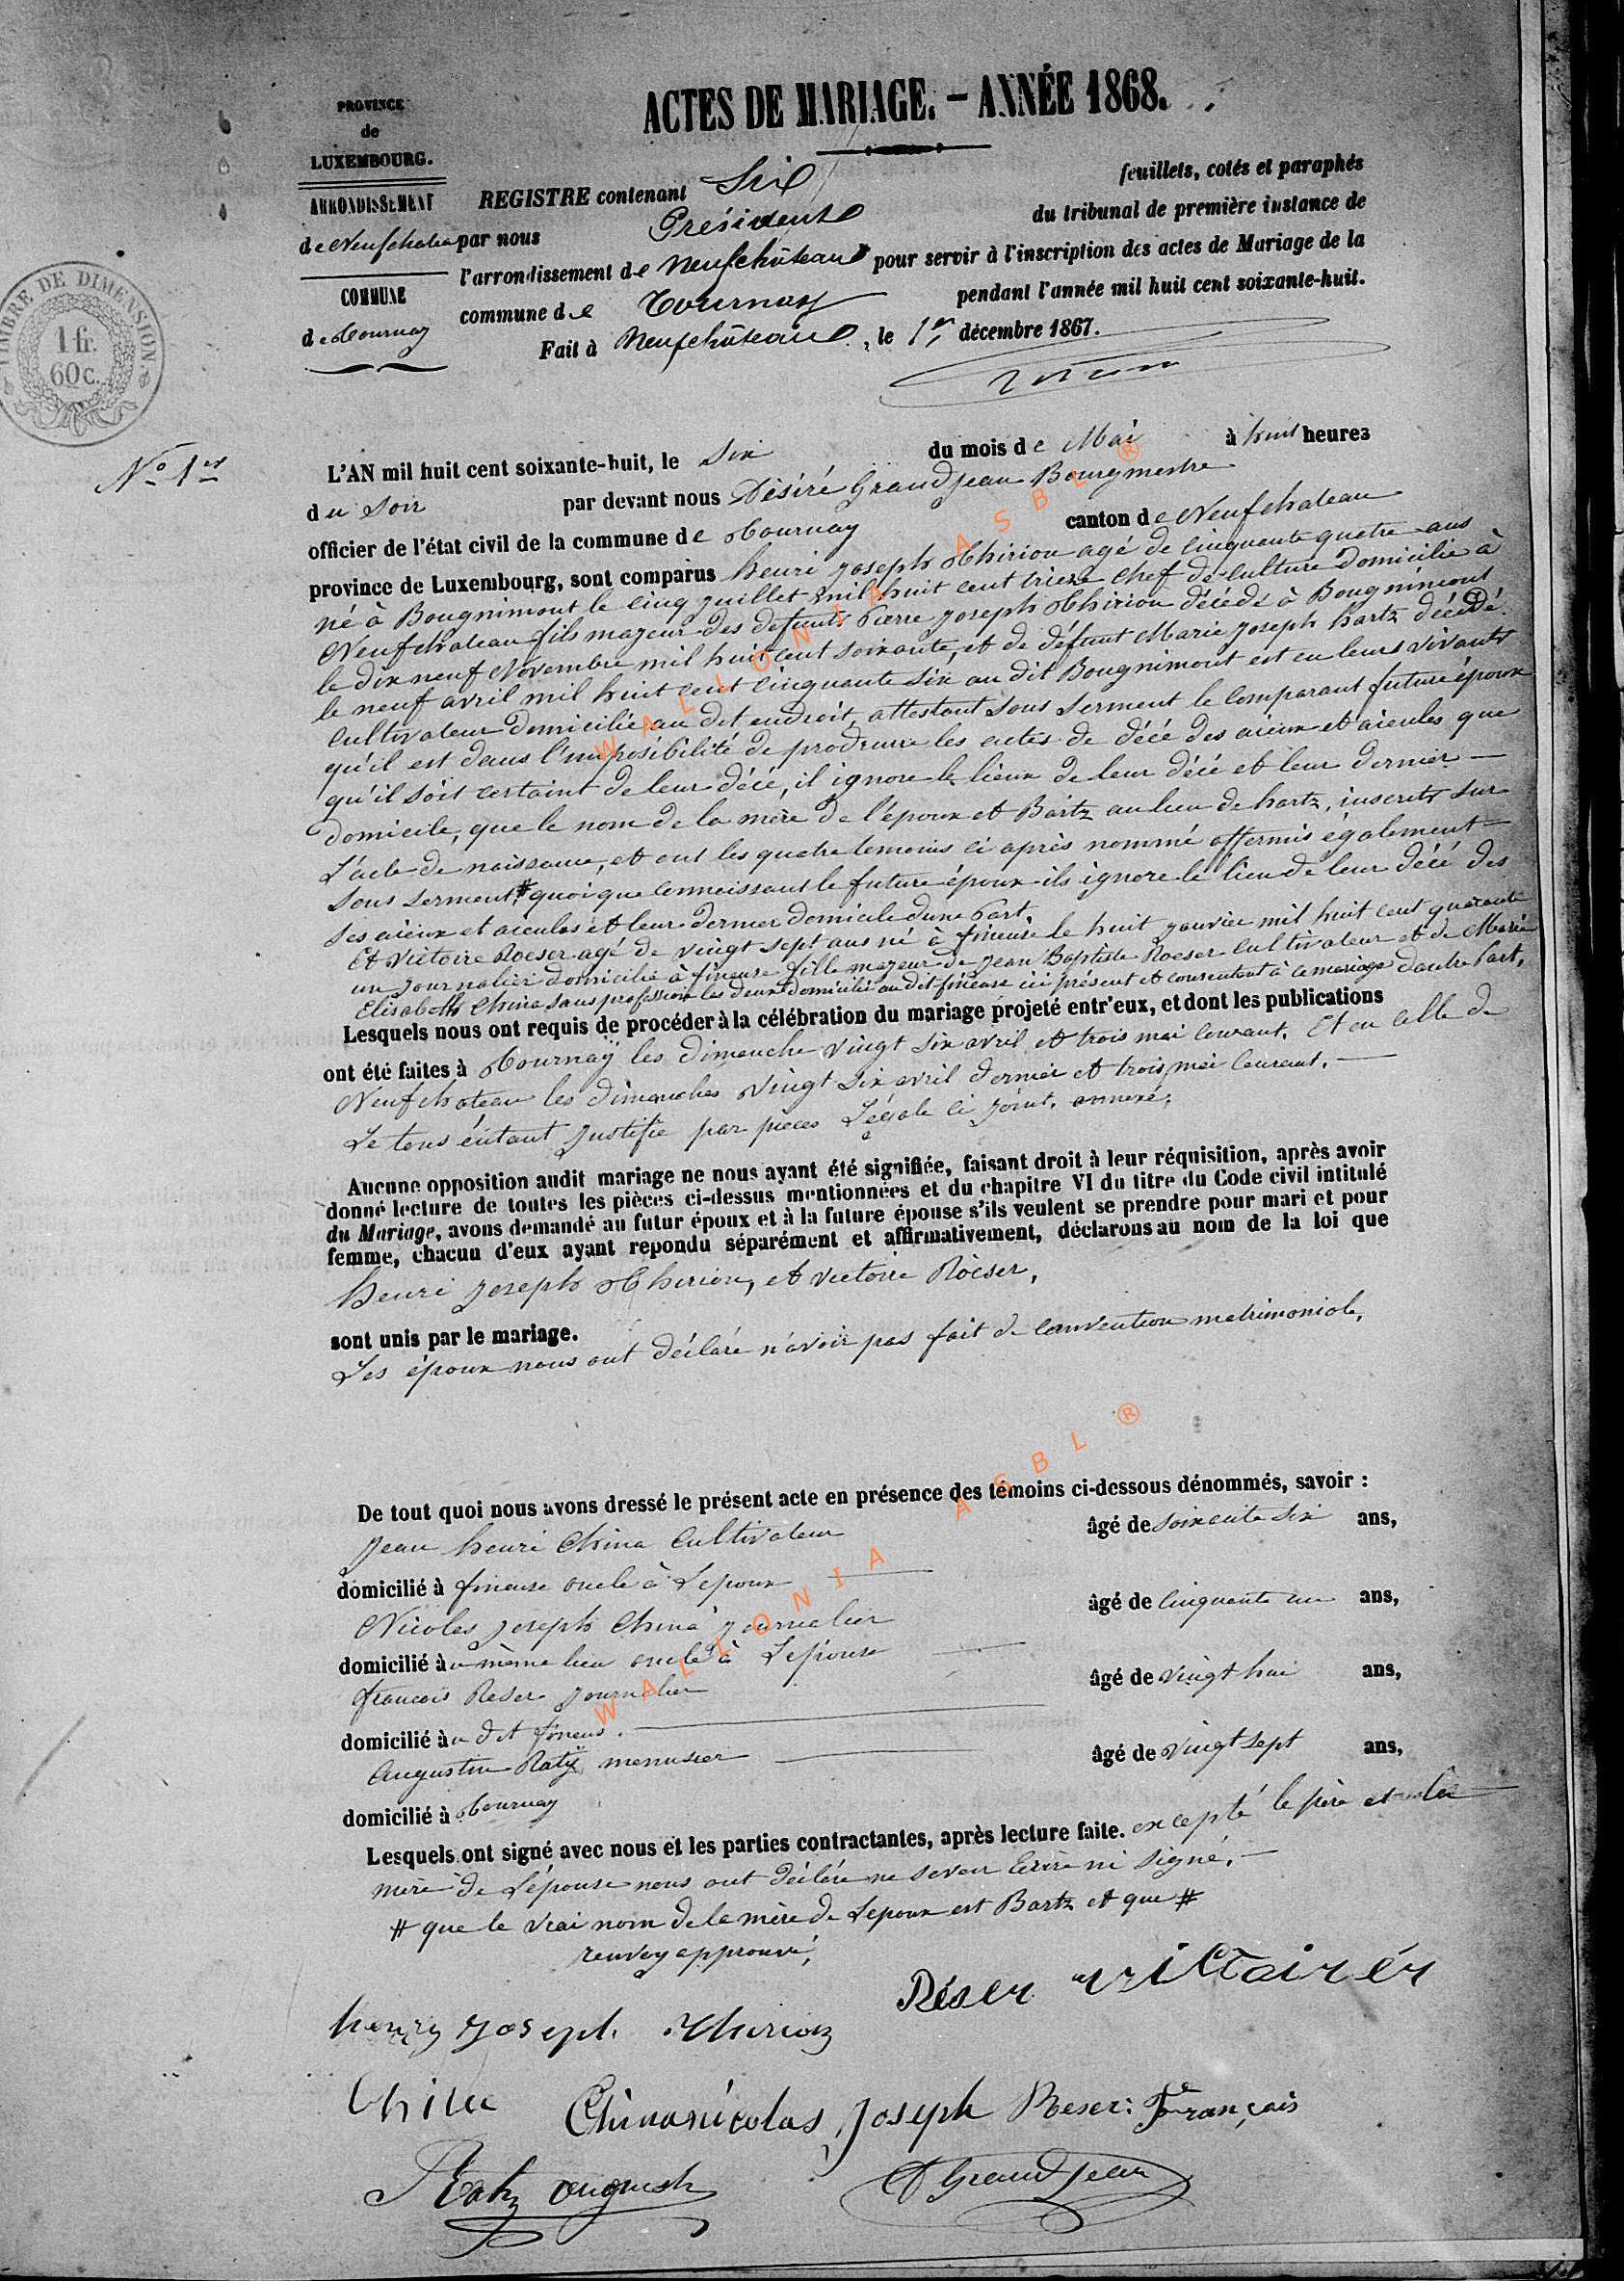 ACTES DE MARIAGE. — ANNÉE 1868.
PROVINCE
de
LUXEMBOURG.
ARRONDISSEMENT
de Neufchateau
COMMUNE
de Tournay
TIMBRE DE DIMENSION
1 fr.
60 c.
REGISTRE contenant Six feuillets, cotés et paraphés
par nous Président du tribunal de première instance de
l'arrondissement de Neufchâteau pour servir à l'inscription des actes de Mariage de la
commune de Tournay pendant l'année mil huit cent soixante-huit.
Fait à Neufchâteau, le 1er décembre 1867.
No 1er
L'AN mil huit cent soixante-huit, le Six du mois de Mai à huit heures
du Soir par devant nous Désiré Grandjean Bourgmestre
officier de l'état civil de la commune de Tournay canton de Neufchateau
province de Luxembourg, sont comparus henri joseph Thirion agé de cinquante quatre ans
né à Bougnimont le cinq juillet mil huit cent trieze chef de culture domicilié à
Neufchateau fils majeur des défunts Pierre joseph Thirion décédé à Bougnimont
le dix neuf Novembre mil huit cent soixante, et de défunt Marie joseph hartz décédé
le neuf avril mil huit cent cinquante six au dit Bougnimont est en leurs vivants
cultivateur domicilié au dit endroit, attestant sous serment le comparant future époux
qu'il est dans l'imposibilité de produire les actes de décé des aieux et aieules que
qu'il soit certaint de leur décé, il ignore le lieux de leur décé et leur dernier —
domicile, que le nom de la mère de l'époux et Bartz au lieu de hartz, inscrits sur
L'acte de naissance, et ont les quatre temoins ci après nommé affermis également —
sous serment # quoique connaissant le future époux ils ignore le lieu de leur décé des
ses aieux et aieules et leur dernier domicile dune Part.
Et Victoire Roeser agé de vingt sept ans né à fineuse le huit janvier mil huit cent quarante
un journalier domicilié à fineuse fille majeur de jean Baptiste Roeser cultivateur et de Marie
Elisabeth China sans profession les deux domicilié au dit fineuse ici présent et consentant à ce mariage dautre Part.
Lesquels nous ont requis de procéder à la célébration du mariage projeté entr'eux, et dont les publications
ont été faites à Tournaÿ les dimanche vingt six avril et trois mai courant. Et en celle de
Neufchateau les dimanches vingt six avril dernier et trois mai courant. —
Le tous éntant justifie par pieces Légale ci joint. annexé.
Aucune opposition audit mariage ne nous ayant été signifiée, faisant droit à leur réquisition, après avoir
donné lecture de toutes les pièces ci-dessus mentionnées et du chapitre VI du titre du Code civil intitulé
du Mariage, avons demandé au futur époux et à la future épouse s'ils veulent se prendre pour mari et pour
femme, chacun d'eux ayant repondu séparément et affirmativement, déclarons au nom de la loi que
henri joseph Thirion, et victoire Röeser,
sont unis par le mariage.
Les époux nous ont déclaré n'avoir pas fait de convention matrimoniale.
De tout quoi nous avons dressé le présent acte en présence des témoins ci-dessous dénommés, savoir :
jean henri China Cultivateur âgé de soixante six ans,
domicilié à fineuse oncle à Lepoux
Nicolas joseph China journalier âgé de cinquante un ans,
domicilié au même lieu oncle à Lépouse
francois Reser journalier âgé de vingt hui ans,
domicilié au dit fineus.
Augustin Ratÿ menusier âgé de vingt sept ans,
domicilié à Tournay
Lesquels ont signé avec nous et les parties contractantes, après lecture faite. excepté le père et la
mère de Lépouse nous ont déclare ne savoir Ecrire ni signé. —
# que le vrai nom de la mère de Lepoux est Bartz et que #
renvoy approuvé,
Réser victoire
henry joseph Thirion
China Chinanicolas Joseph Reser: François
Raty august
D Grandjean
WALLONIA ASBL ®
WALLONIA ASBL ®